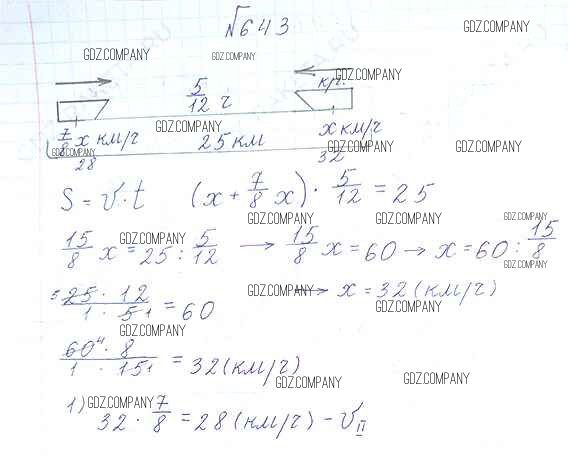 №643
GDZ.COMPANY
GDZ.COMPANY GDZ.COMPANY
GDZ.COMPANY
5/12 ч
7/8 x км/ч GDZ.COMPANY 25 км x км/ч GDZ.COMPANY GDZ.COMPANY
GDZ.COMPANY
28 32
S = v·t (x + 7/8 x) · 5/12 = 25
GDZ.COMPANY GDZ.COMPANY GDZ.COMPANY
15/8 x = 25 : 5/12 → 15/8 x = 60 → x = 60 : 15/8
GDZ.COMPANY GDZ.COMPANY
25 · 12 / 1 · 5 = 60 → x = 32 (км/ч)
GDZ.COMPANY GDZ.COMPANY
GDZ.COMPANY
60 · 8 / 1 · 15 = 32 (км/ч)
GDZ.COMPANY GDZ.COMPANY
1) GDZ.COMPANY
32 · 7/8 = 28 (км/ч) – v II